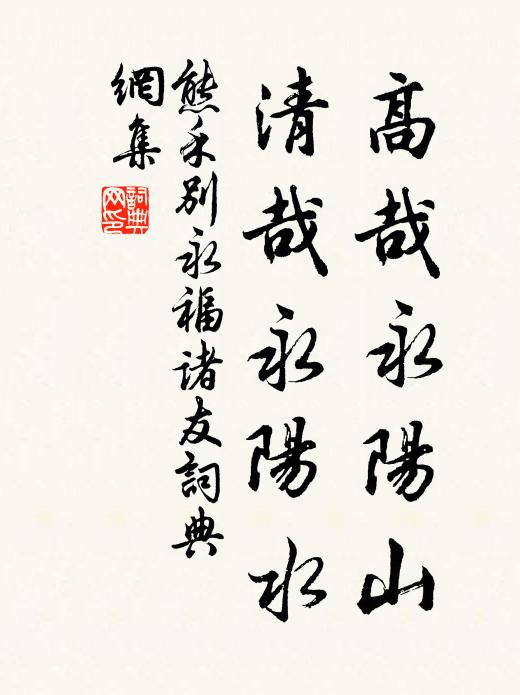 高哉永陽山
清哉永陽水
熊禾別永福諸友詞典
網集
詞典網印